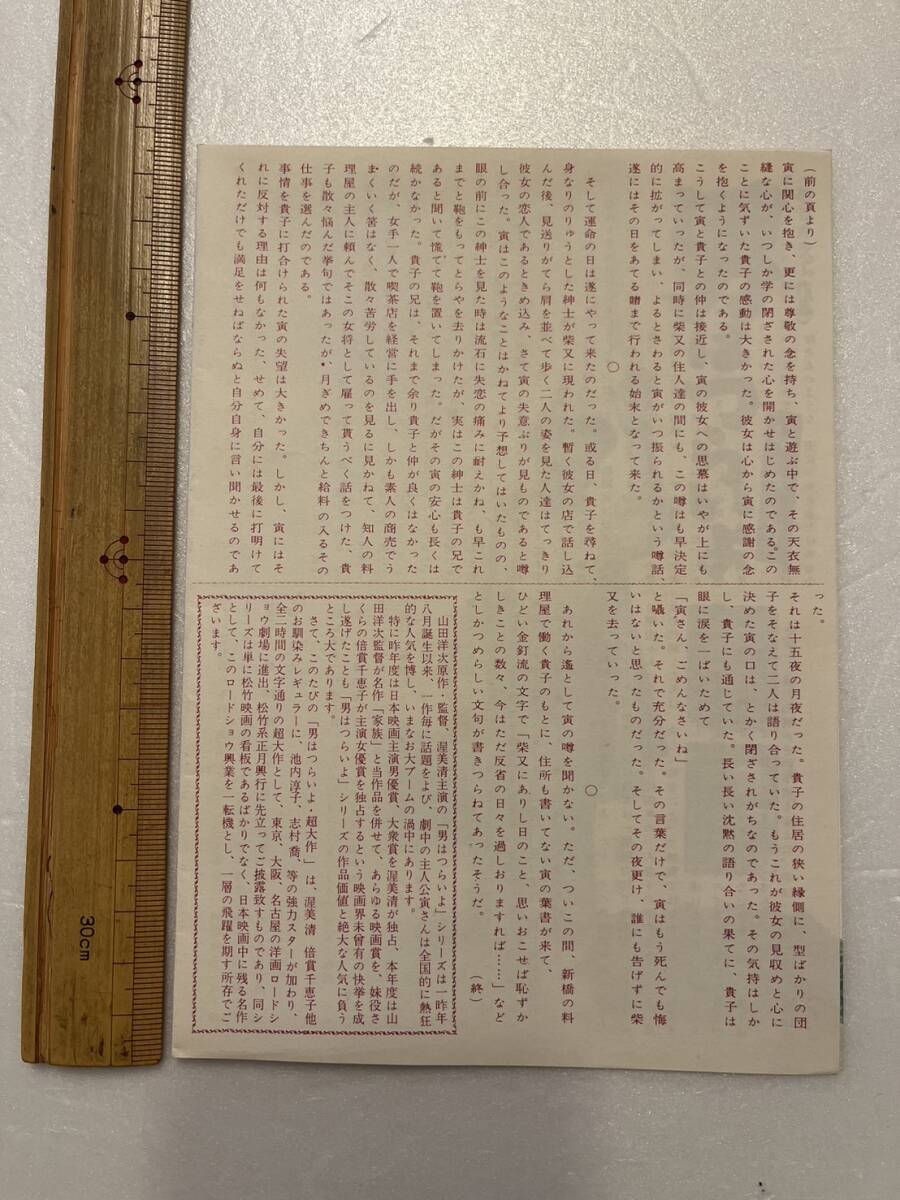 （前の頁より）
寅に関心を抱き、更には尊敬の念を持ち、寅と遊ぶ中で、その天衣無
縫な心が、いつしか学の閉ざされた心を開かせはじめたのである。この
ことに気ずいた貴子の感動は大きかった。彼女は心から寅に感謝の念
を抱くようになったのである。
こうして寅と貴子との仲は接近し、寅の彼女への思慕はいやが上にも
高まっていったが、同時に柴又の住人達の間にも、この噂はも早決定
的に拡がってしまい、よるとさわると寅がいつ振られるかという噂話、
遂にはその日をあてる賭まで行われる始末となって来た。
○
そして運命の日は遂にやって来たのだった。或る日、貴子を尋ねて、
身なりのりゅうとした紳士が柴又に現われた。暫く彼女の店で話し込
んだ後、見送りがてら肩を並べて歩く二人の姿を見た人達はてっきり
彼女の恋人であるときめ込み、さて寅の失意ぶりが見ものであると噂
し合った。寅はこのようなことはかねてより予想してはいたものの、
眼の前にこの紳士を見た時は流石に失恋の痛みに耐えかね、も早これ
までと鞄をもってとらやを去りかけたが、実はこの紳士は貴子の兄で
あると聞いて慌てて鞄を置いてしまった。だがその寅の安心も長くは
続かなかった。貴子の兄は、それまで余り貴子と仲が良くはなかった
のだが、女手一人で喫茶店を経営に手を出し、しかも素人の商売でう
まくいく筈はなく、散々苦労しているのを見るに見かねて、知人の料
理屋の主人に頼んでそこの女将として雇って貰うべく話をつけた、貴
子も散々悩んだ挙句ではあったが、月ぎめできちんと給料の入るその
仕事を選んだのである。
事情を貴子に打合けられた寅の失望は大きかった。しかし、寅にはそ
れに反対する理由は何もなかった、せめて、自分には最後に打明けて
くれただけでも満足をせねばならぬと自分自身に言い聞かせるのであ
った。
それは十五夜の月夜だった。貴子の住居の狭い縁側に、型ばかりの団
子をそなえて二人は語り合っていた。もうこれが彼女の見収めと心に
決めた寅の口は、とかく閉ざされがちなのであった。その気持はしか
し、貴子にも通じていた。長い長い沈黙の語り合いの果てに、貴子は
眼に涙を一ぱいいためて
「寅さん、ごめんなさいね」
と囁いた。それで充分だった。その言葉だけで、寅はもう死んでも悔
いはないと思ったものだった。そしてその夜更け、誰にも告げずに柴
又を去っていった。
○
あれから遙として寅の噂を聞かない。ただ、ついこの間、新橋の料
理屋で働く貴子のもとに、住所も書いてない寅の葉書が来て、
ひどい金釘流の文字で「柴又にありし日のこと、思いおこせば恥ずか
しきことの数々、今はただ反省の日々を過しおりますれば……」など
としかつめらしい文句が書きつらねてあったそうだ。　（終）
山田洋次原作・監督、渥美清主演の「男はつらいよ」シリーズは一昨年
八月誕生以来、一作毎に話題をよび、劇中の主人公寅さんは全国的に熱狂
的な人気を博し、いまなお大ブームの渦中にあります。
特に昨年度は日本映画主演男優賞、大衆賞を渥美清が独占、本年度は山
田洋次監督が名作「家族」と当作品を併せて、あらゆる映画賞を、妹役さ
くらの倍賞千恵子が主演女優賞を独占するという映画界未曾有の快挙を成
し遂げたことも「男はつらいよ」シリーズの作品価値と絶大な人気に負う
ところ大であります。
さて、このたびの「男はつらいよ・超大作」は、渥美清　倍賞千恵子他
のお馴染みレギュラーに、池内淳子、志村喬、等の強力スターが加わり、
全二時間の文字通りの超大作として、東京、大阪、名古屋の洋画ロードシ
ョウ劇場に進出、松竹系正月興行に先立ってご披露致すものであり、同シ
リーズは単に松竹映画の看板であるばかりでなく、日本映画中に残る名作
として、このロードショウ興業を一転機とし、一層の飛躍を期す所存でご
ざいます。
30cm